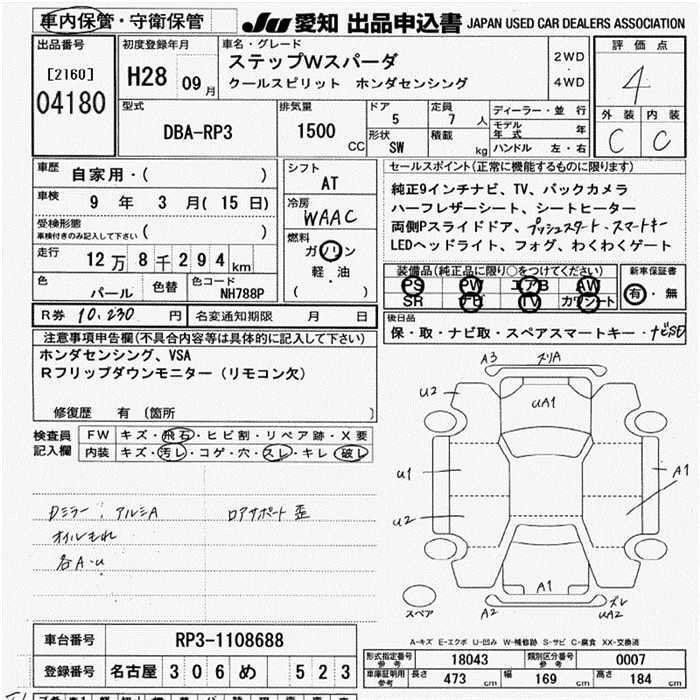 車内保管・守衛保管 JU 愛知 出品申込書 JAPAN USED CAR DEALERS ASSOCIATION
出品番号 初度登録年月 車名・グレード 評価点
[2160] H28 09月 ステップWスパーダ 2WD
04180 クールスピリット ホンダセンシング 4WD 4
型式 排気量 ドア 定員 ディーラー・並行 外装 内装
DBA-RP3 1500 CC 5 7人 モデル年式 年 C C
形状 SW 積載 kg ハンドル 左・右
車歴 自家用・( ) シフト AT セールスポイント(正常に機能するものに限ります)
車検 9年 3月(15日) 冷房 WAAC 純正9インチナビ、TV、バックカメラ
ハーフレザーシート、シートヒーター
受検形態 ( ) 両側Pスライドドア、プッシュスタート・スマートキー
車検付きのみ記入して下さい 燃料 LEDヘッドライト、フォグ、わくわくゲート
走行 12万8千294km ガソリン
軽・油
( )
装備品(純正品に限り○をつけてください) 新車保証書
色 パール 色替 色コード NH788P PS PW エアB AW 有・無
SR ナビ TV カワシート
R券 10,230円 名変通知期限 月 日 後日品
保・取・ナビ取・スペアスマートキー・ナビSD
注意事項申告欄(不具合内容等は具体的に記入して下さい)
ホンダセンシング、VSA
Rフリップダウンモニター(リモコン欠)
修復歴 有 〔箇所 〕
検査員記入欄 FW キズ・飛石・ヒビ割・リペア跡・X要
内装 キズ・汚レ・コゲ・穴・スレ・キレ・破レ
Dミラー;アルミA ロアサポート歪
オイルもれ
各A-u
A3 ズリA
U2 UA1
U1 A1
U2
A1
スペア A2 ズレ UA2
A-キズ E-エクボ U-凹み W-補修跡 S-サビ C-腐食 XX-交換済
車台番号 RP3-1108688
登録番号 名古屋 306 め 523
形式指定番号 参考 18043 類別区分番号 参考 0007
車庫証明用 参考 長さ 473cm 幅 169cm 高さ 184cm